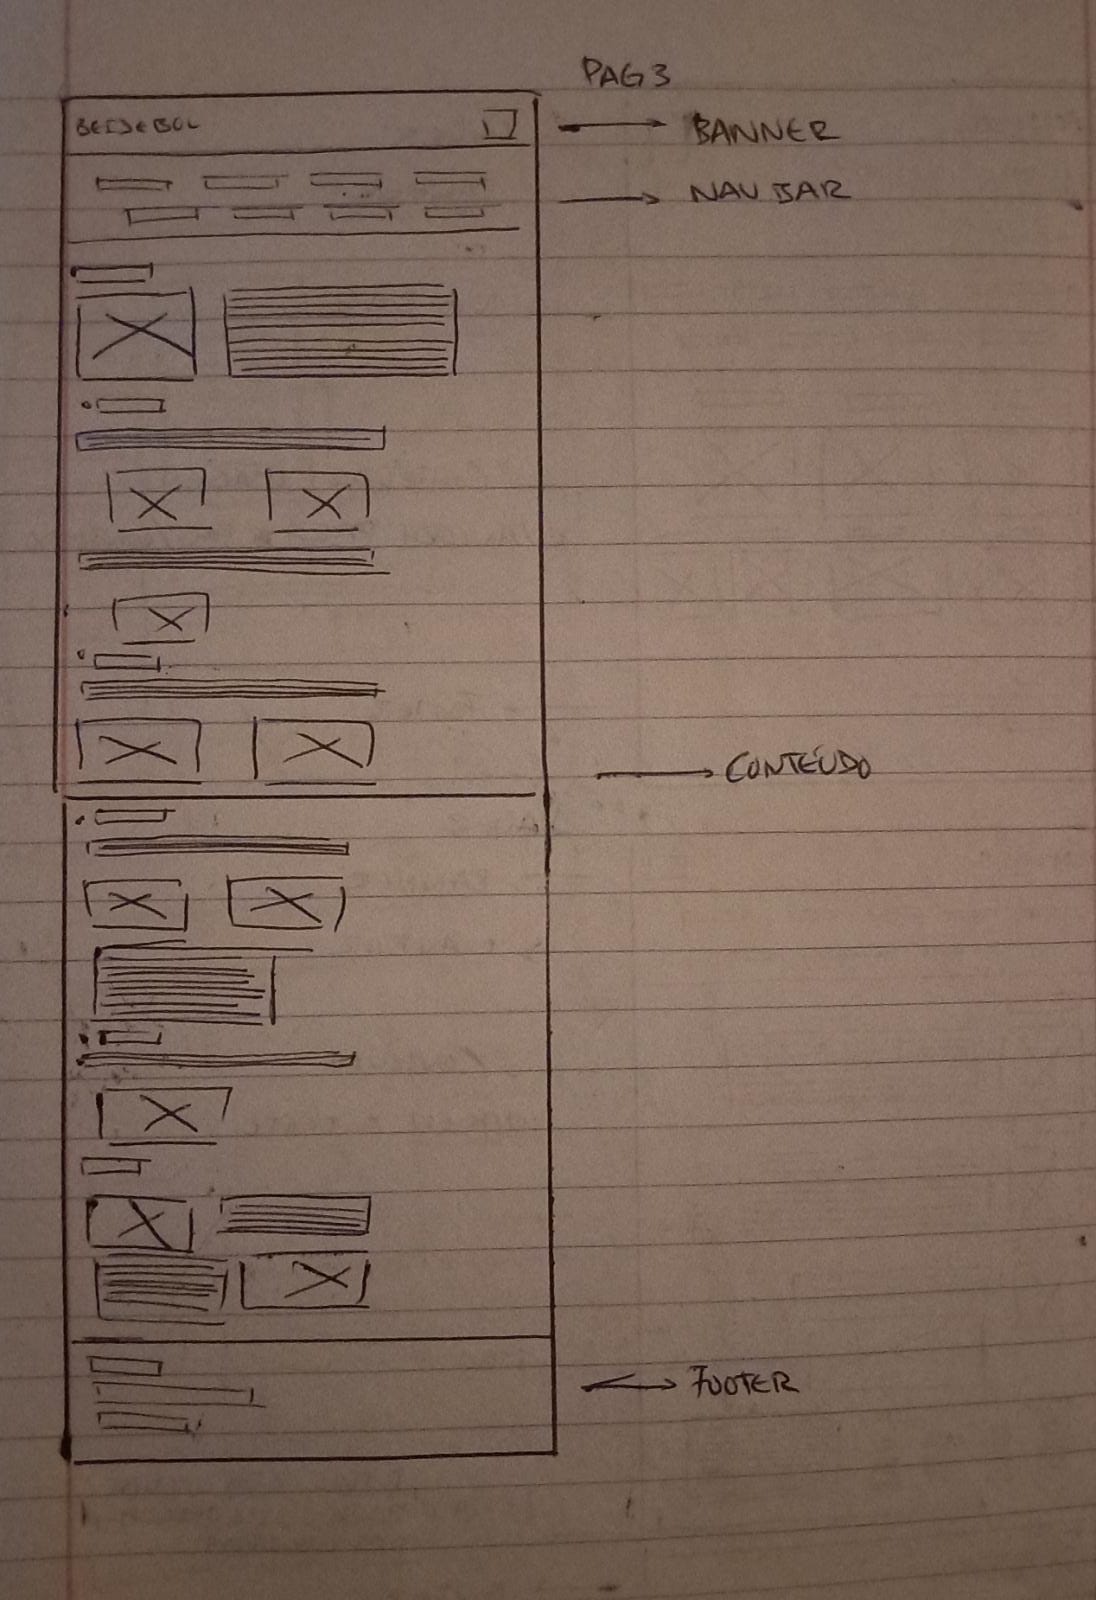 PAG 3
BEISEBOL
BANNER
NAV BAR
CONTEÚDO
FOOTER